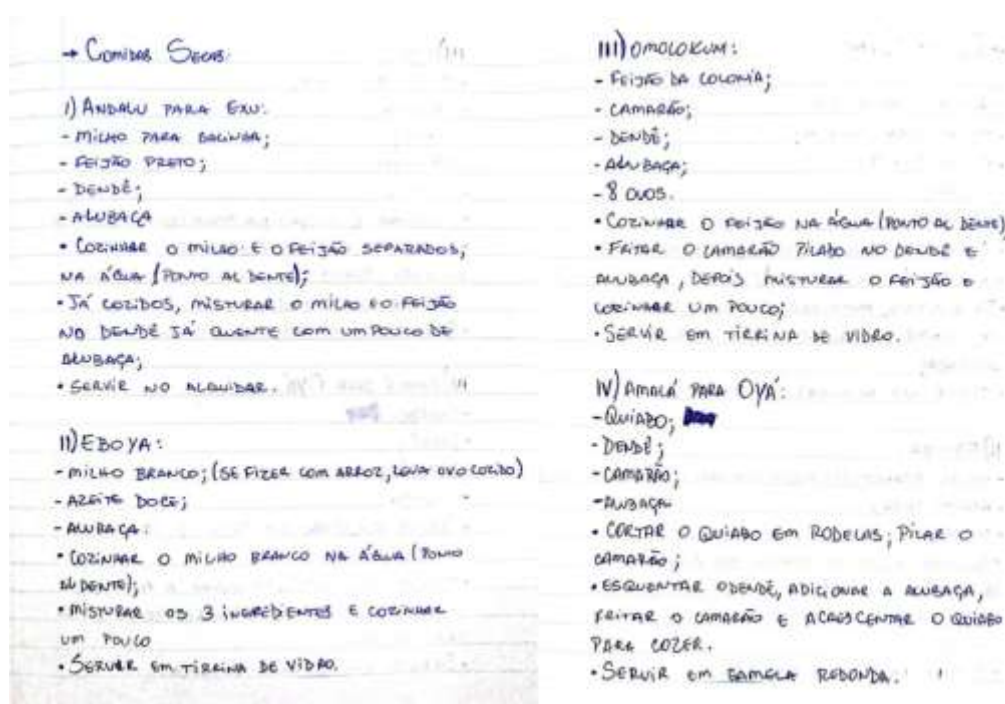 → Comidas Secas:
I) ANDALU PARA EXU:
- MILHO PARA GALINHA;
- FEIJÃO PRETO;
- DENDÊ;
- ALUBAÇA
• COZINHAR O MILHO E O FEIJÃO SEPARADOS,
NA ÁGUA (PONTO AL DENTE);
• JÁ COZIDOS, MISTURAR O MILHO E O FEIJÃO
NO DENDÊ JÁ QUENTE COM UM POUCO DE
ALUBAÇA;
• SERVIR NO ALGUIDAR.
II) EBO YA:
- MILHO BRANCO; (SE FIZER COM ARROZ, LEVA OVO COZIDO)
- AZEITE DOCE;
- ALUBAÇA:
• COZINHAR O MILHO BRANCO NA ÁGUA (PONTO
AL DENTE);
• MISTURAR OS 3 INGREDIENTES E COZINHAR
UM POUCO
• SERVIR EM TIRRINA DE VIDRO.
III) OMOLOKUM:
- FEIJÃO DA COLONIA;
- CAMARÃO;
- DENDÊ;
- ALUBAÇA;
- 8 OVOS.
• COZINHAR O FEIJÃO NA ÁGUA (PONTO AL DENTE)
• FRITAR O CAMARÃO PILADO NO DENDÊ E
ALUBAÇA, DEPOIS MISTURAR O FEIJÃO E
COZINHAR UM POUCO;
• SERVIR EM TIRRINA DE VIDRO.
IV) AMALÁ PARA OYÁ:
- QUIABO;
- DENDÊ;
- CAMARÃO;
- ALUBAÇA
• CORTAR O QUIABO EM RODELAS; PILAR O
CAMARÃO;
• ESQUENTAR O DENDÊ, ADICIONAR A ALUBAÇA,
FRITAR O CAMARÃO E ACRESCENTAR O QUIABO
PARA COZER.
• SERVIR EM GAMELA REDONDA.